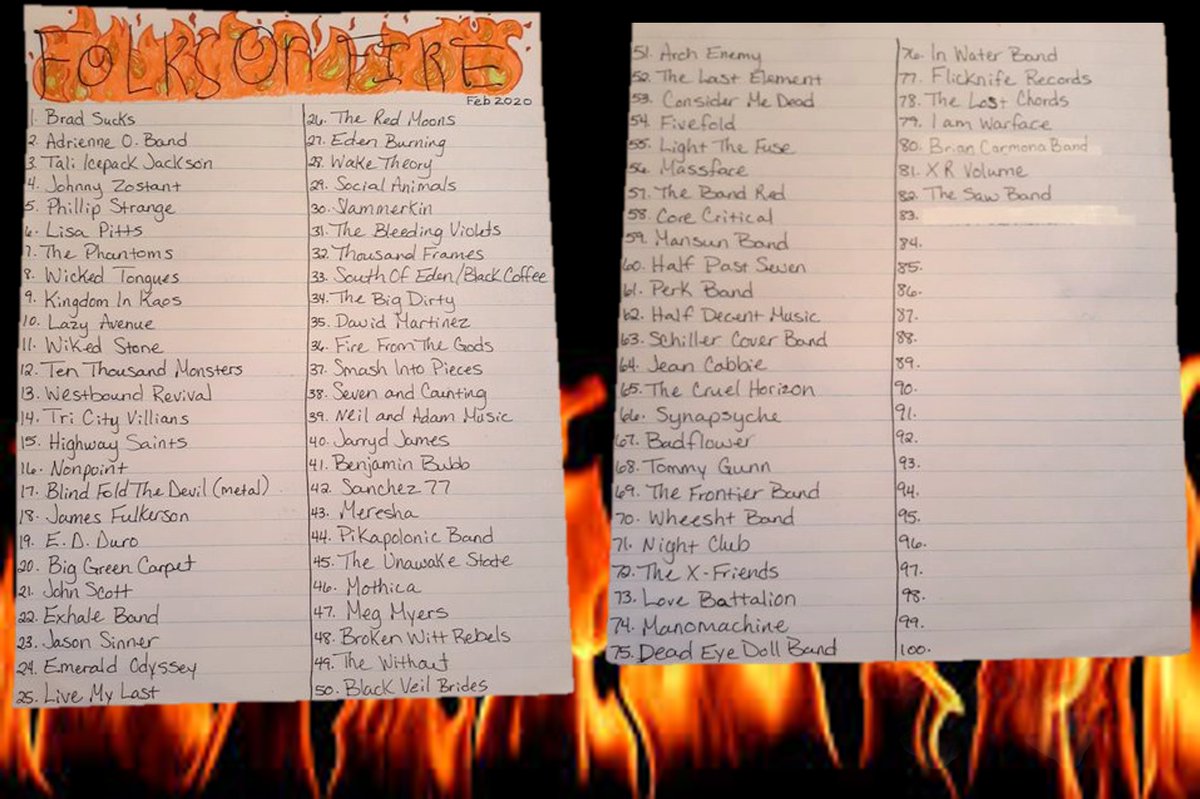 FOLKS ON FIRE
Feb 2020
1. Brad Sucks
2. Adrienne O. Band
3. Tali Icepack Jackson
4. Johnny Zostant
5. Phillip Strange
6. Lisa Pitts
7. The Phantoms
8. Wicked Tongues
9. Kingdom In Kaos
10. Lazy Avenue
11. Wiked Stone
12. Ten Thousand Monsters
13. Westbound Revival
14. Tri City Villians
15. Highway Saints
16. Nonpoint
17. Blind Fold The Devil (metal)
18. James Fulkerson
19. E.D. Duro
20. Big Green Carpet
21. John Scott
22. Exhale Band
23. Jason Sinner
24. Emerald Odyssey
25. Live My Last
26. The Red Moons
27. Eden Burning
28. Wake Theory
29. Social Animals
30. Slammerkin
31. The Bleeding Violets
32. Thousand Frames
33. South Of Eden/Black Coffee
34. The Big Dirty
35. David Martinez
36. Fire From The Gods
37. Smash Into Pieces
38. Seven and Counting
39. Neil and Adam Music
40. Jarryd James
41. Benjamin Bubb
42. Sanchez 77
43. Meresha
44. Pikapolonic Band
45. The Unawake State
46. Mothica
47. Meg Myers
48. Broken Witt Rebels
49. The Without
50. Black Veil Brides
51. Arch Enemy
52. The Last Element
53. Consider Me Dead
54. Fivefold
55. Light The Fuse
56. Massface
57. The Band Red
58. Core Critical
59. Mansun Band
60. Half Past Seven
61. Perk Band
62. Half Decent Music
63. Schiller Cover Band
64. Jean Cabbie
65. The Cruel Horizon
66. Synapsyche
67. Badflower
68. Tommy Gunn
69. The Frontier Band
70. Wheesht Band
71. Night Club
72. The X-Friends
73. Love Battalion
74. Manomachine
75. Dead Eye Doll Band
76. In Water Band
77. Flicknife Records
78. The Lost Chords
79. I am Warface
80. Brian Carmona Band
81. XR Volume
82. The Saw Band
83.
84.
85.
86.
87.
88.
89.
90.
91.
92.
93.
94.
95.
96.
97.
98.
99.
100.